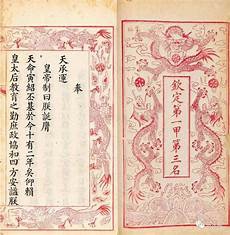 欽定第一甲第三名
奉
天承運
皇帝制曰朕誕膺
天命寅紹丕基於今十有二年矣仰賴
皇太后教育之勤庶政協和四方安謐朕